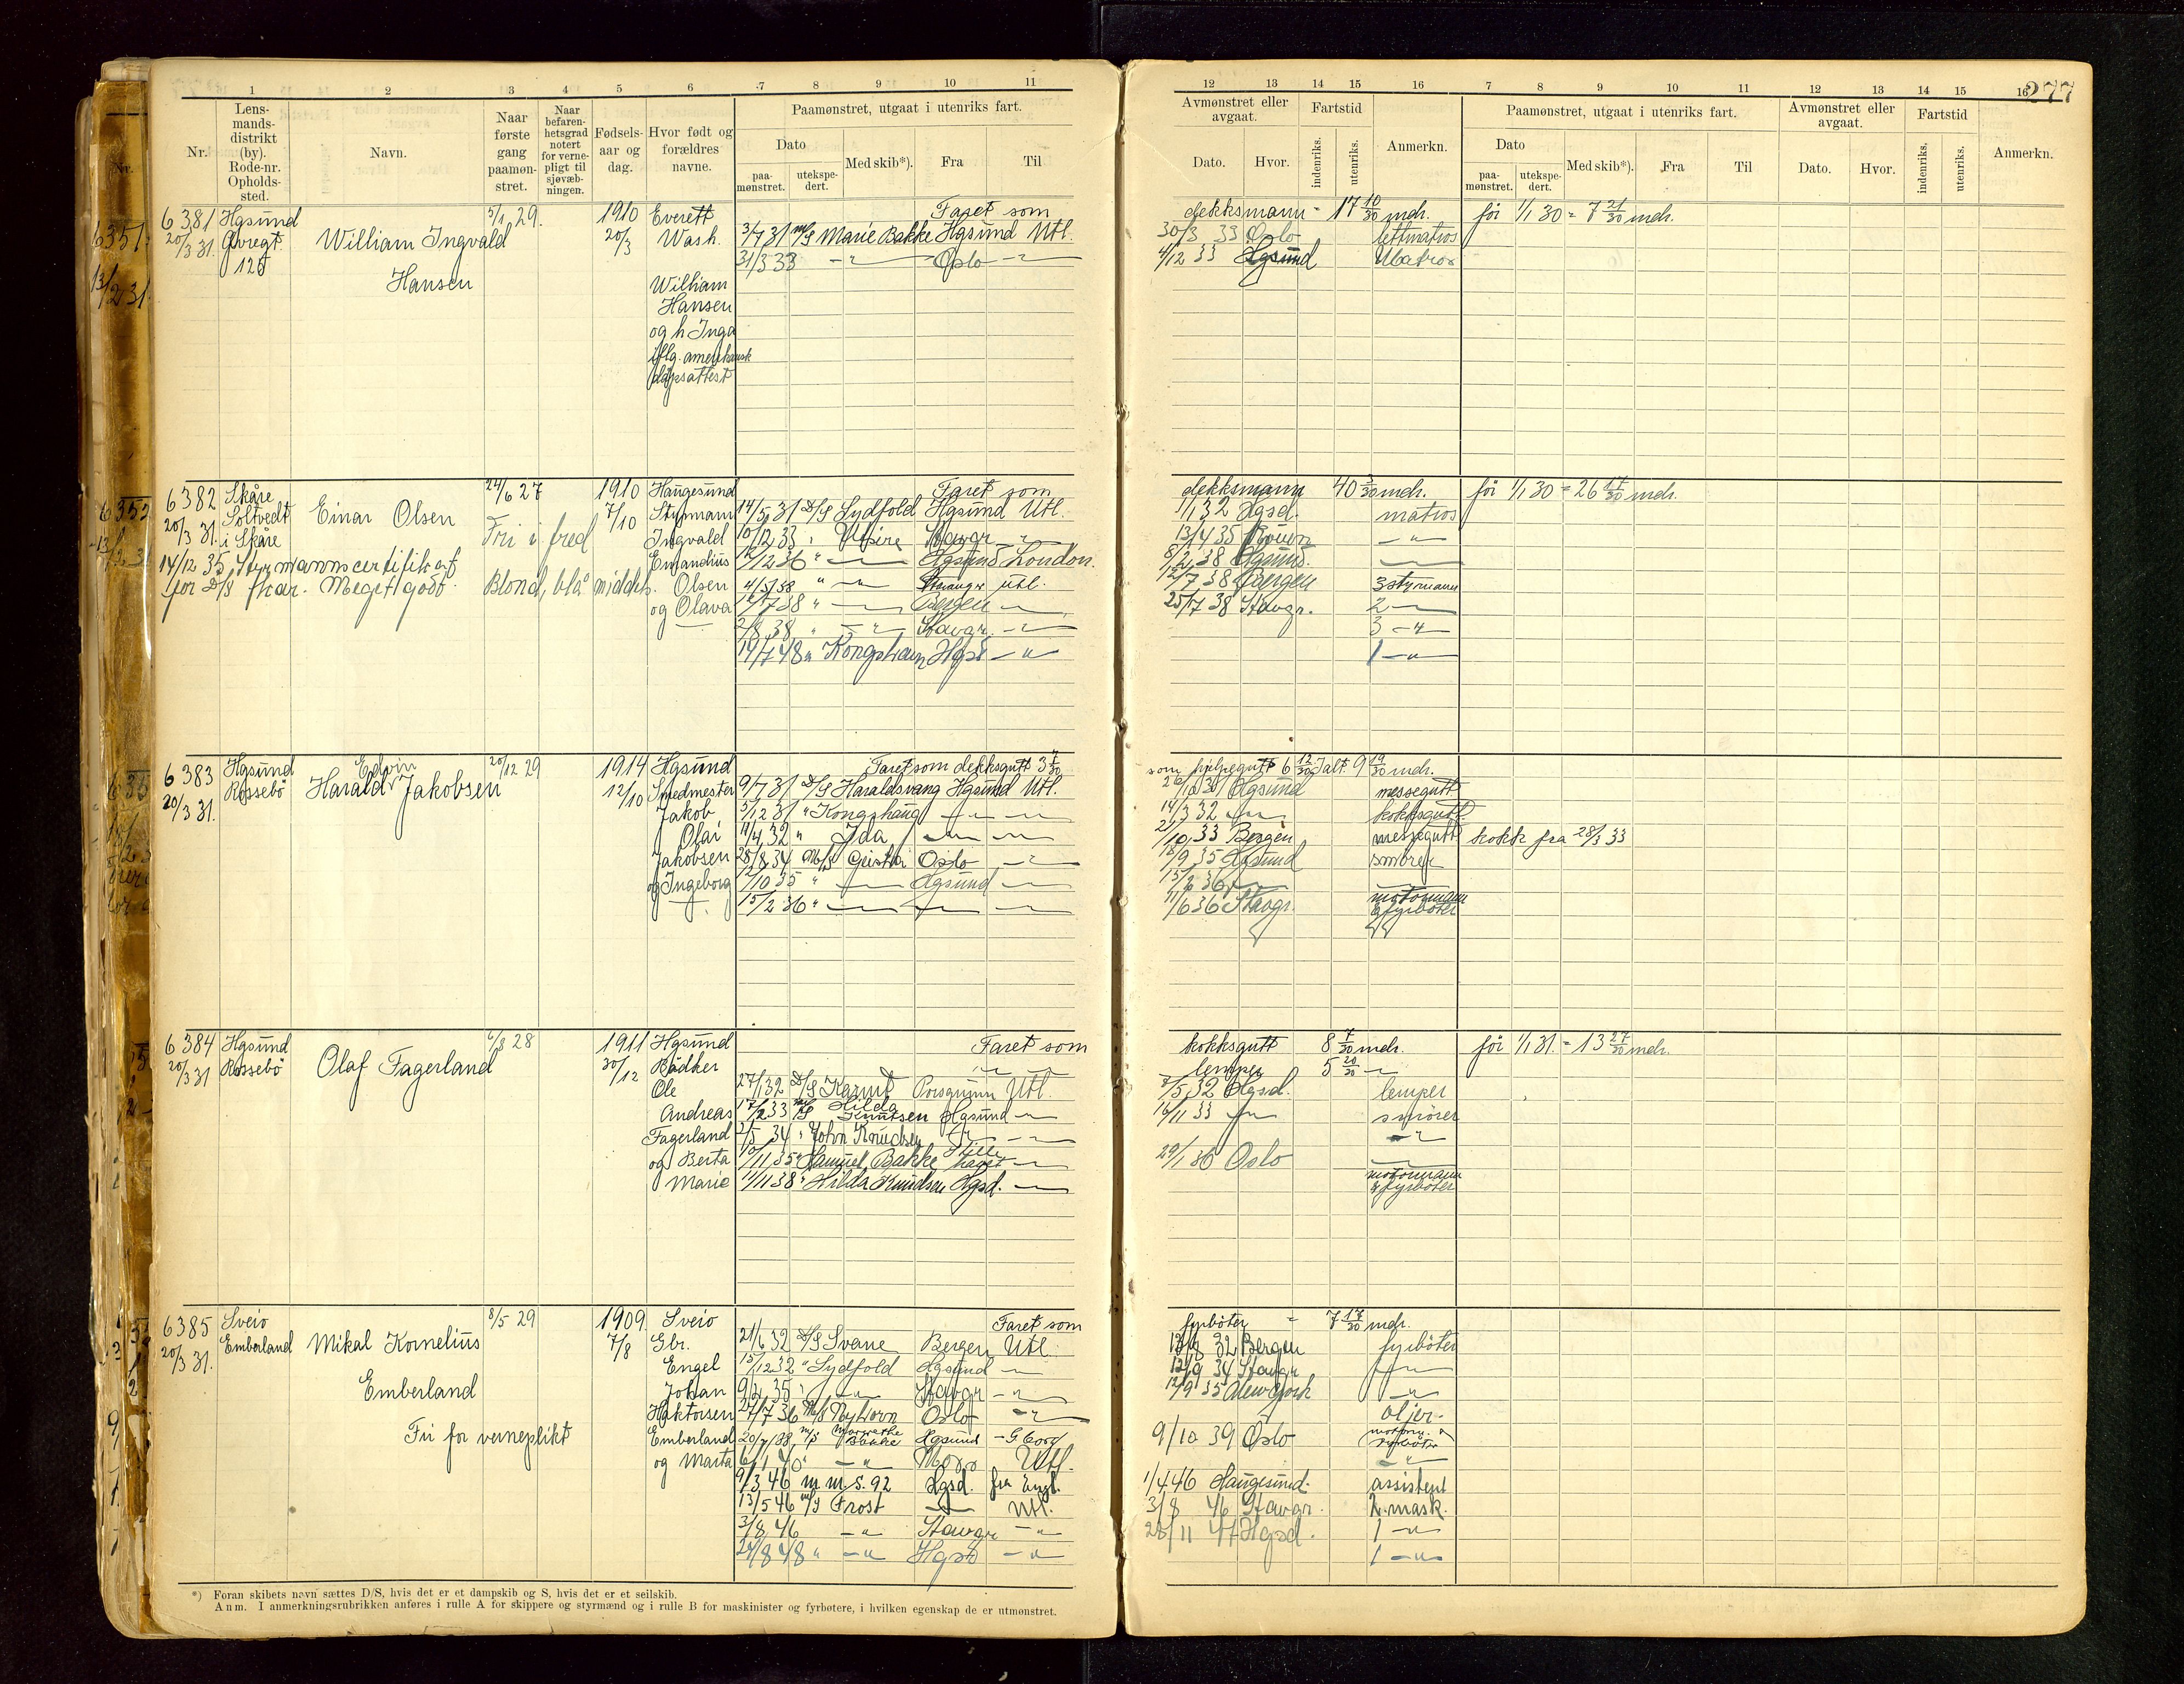 277
1 2 3 4 5 6 7 8 9 10 11
Nr.
Lens-
mands-
distrikt
(by).
Rode-nr.
Opholds-
sted.
Navn.
Naar
første
gang
paamøn-
stret.
Naar
befaren-
hetsgrad
notert
for verne-
pligt til
sjøvæb-
ningen.
Fødsels-
aar og
dag.
Hvor født og
forældres
navne.
Paamønstret, utgaat i utenriks fart.
Dato
paa-
mønstret.
utekspe-
dert.
Med skib*).
Fra
Til
12 13 14 15 16 7 8 9 10 11 12 13 14 15 16
Avmønstret eller
avgaat.
Dato. Hvor.
Fartstid
indenriks.
utenriks.
Anmerkn.
Paamønstret, utgaat i utenriks fart.
Dato
paa-
mønstret.
utekspe-
dert.
Med skib*).
Fra
Til
Avmønstret eller
avgaat.
Dato. Hvor.
Fartstid
indenriks.
utenriks.
Anmerkn.
6381 Hgsund 5/1 29. 1910 Everett Faret som dekksmann - 17 10/30 mdr. før 1/1 30 = 7 21/30 mdr.
20/3 31. 126 William Ingvald 20/3 Wash. 3/7 31 M/S Marie Bakke Hgsund Utl. 30/3 33 Oslo lettmatros
31/3 33 -"- Oslo -"- 4/12 33 Hgsund
Hansen
William
Hansen
og h Inga
iflg. amerikansk
dåpsattest
6382 Skåre 24/6 27 1910 Haugesund Faret som dekksmann 40 mdr. før 1/1 30 = 26 17/30 mdr.
20/3 31. Soltvedt Einar Olsen 7/10 Styrmann 14/5 31 D/S Sydfold Hgsund Utl. 1/1 32 Hgsd. matros
i Skåre Fri i fred Ingvald 10/12 33 " Utsire Stavgr -"- 13/4 35 -"-
14/12 35 Styrmannscertifikat Emandius 12/12 36 " -"- Hgsund London. 8/2 38 Hgsund. -"-
for D/S Meget godt. Blond, blå middels. Olsen 4/3 38 " -"- Stavangr utl. 12/7 38 Bergen 3 styrmann
og Olava 12/7 38 " -"- Bergen -"- 25/7 38 Stavgr. 2 -"-
2/8 38 " -"- Stavgr. -"- 3 -"-
14/7 48 " Kongshavn Hgsd -"- 1 -"-
6383 Hgsund Edvin 20/12 29 1914 Hgsund Faret som dekksgutt 3 7/30 som hjelpegutt 6 12/30 Ialt 9 19/30 mdr.
20/3 31. Rossebø Harald Jakobsen 12/10 Smedmester 9/7 31 D/S Haraldsvang Hgsund Utl. Hgsund messegutt
Jakob 5/12 31 " Kongshaug -"- -"- 14/3 32 -"- kokksgutt
Olai 11/4 32 " Ida -"- -"- 21/10 33 Bergen messegutt kokk fra 28/3 33
Jakobsen 28/8 34 M/S Geisha Oslo -"- 18/9 35 Hgsund smører
og Ingeborg 12/10 35 " -"- Hgsund -"- 15/2 36 -"-
15/2 36 " -"- -"- -"- 11/6 36 Stavgr. motormann
& fyrbøter
6384 Hgsund 6/3 28 1911 Hgsund Faret som kokksgutt 8 7/30 mdr. før 1/1 31. = 13 27/30 mdr.
20/3 31 Rossebø Olaf Fagerland 30/12 Bødker -"- lemper 5 20/30 -"-
Ole 27/1 32 D/S Karmt Porsgrunn Utl. 8/5 32 Hgsd. lemper
Andreas 17/2 33 M/S Hilda Knutsen Hgsund -"- 16/11 33 -"- smører
Fagerland 2/5 34 " John Knudsen -"- -"- -"-
og Berta 10/11 35 " Samuel Bakke -"- 29/1 36 Oslo -"-
Marie 1/11 38 " Hilda Knudsen Hgsd. -"- motormann
& fyrbøter
6385 Sveio 8/5 29 1909. Sveio Faret som fyrbøter = 7 17/30 mdr.
20/3 31. Emberland Mikal Kornelius 7/8 Gbr. 21/6 32 D/S Svane Bergen Utl. 32 Bergen fyrbøter
Engel 15/12 32 " Sydfold Hgsund -"- 12/9 34 Stavgr -"-
Emberland Johan 9/2 35 " -"- Stavgr -"- 12/9 35 New York -"-
Haktorsen 27/7 36 M/S Nyhorn Oslo -"- oljer-
Fri for verneplikt Emberland 20/7 M/S Margrethe Bakke Hgsund - 9/10 39 Oslo motorm. & fyrbøter
og Marta 6/1 40 " -"- Utl. -"-
9/3 46 m.m.s. 92 Hgsd. fra Engl. 1/4 46 Haugesund. assistent
13/5 46 M/S Frost -"- Utl. 3/8 46 Stavgr. 2. mask.
3/8 46 -"- Stavgr -"- 28/11 47 Hgsd. 1 -"-
24/8 48 " -"- Hgsd -"- 1 -"-
*) Foran skibets navn sættes D/S, hvis det er et dampskib og S, hvis det er et seilskib.
Anm. I anmerkningsrubrikken anføres i rulle A for skippere og styrmænd og i rulle B for maskinister og fyrbøtere, i hvilken egenskap de er utmønstret.